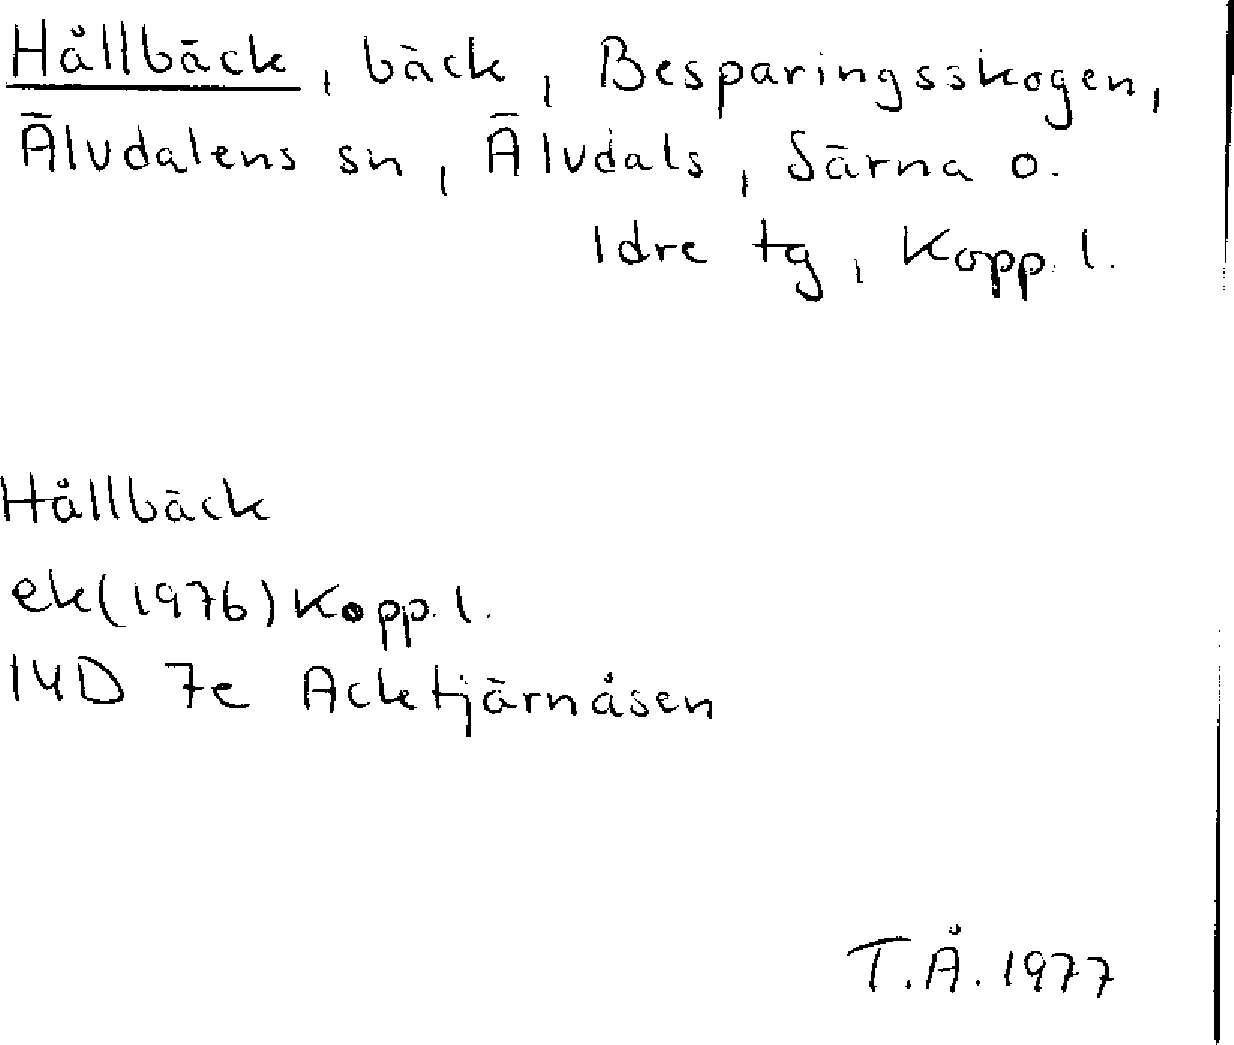 Hållbäck, bäck, Besparingsskogen,
Älvdalens sn, Älvdals, Särna o.
Idre tg, Kopp. l.
Hållbäck
ek (1976) Kopp. l.
14D 7e Acktjärnåsen
T.Å. 1977